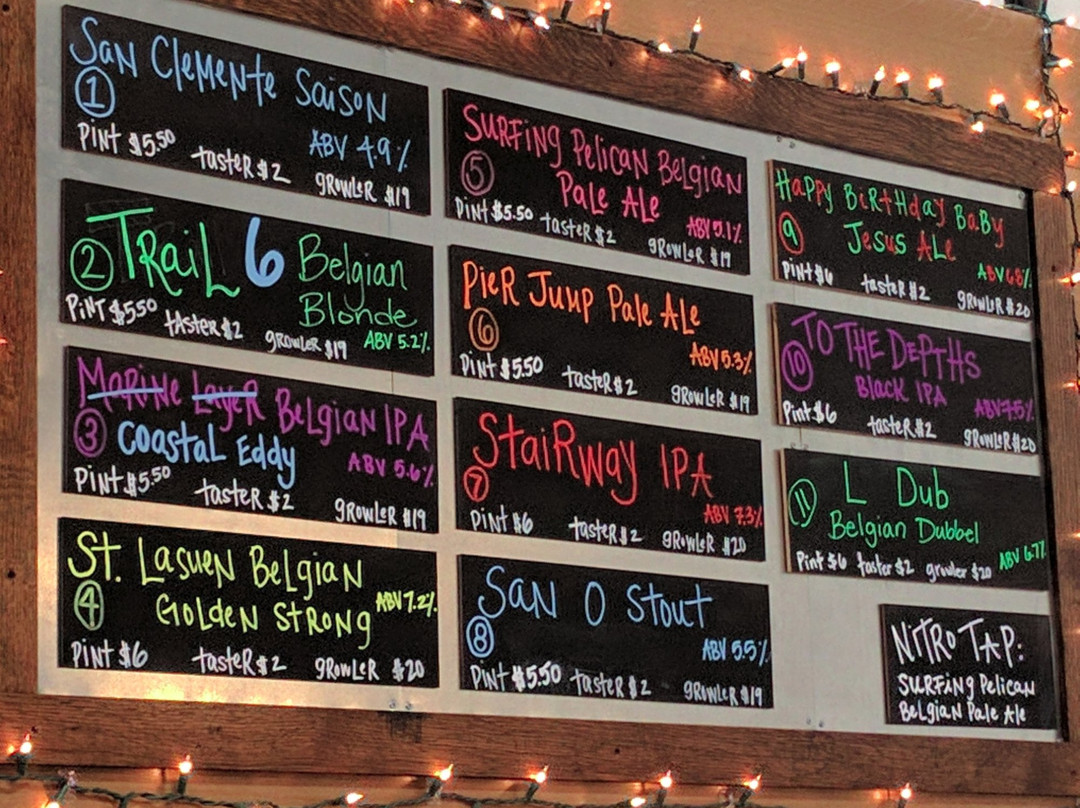 San Clemente Saison
1
ABV 4.9%
Pint $5.50 taster $2 growler $19
2 Trail 6 Belgian
Blonde
ABV 5.2%
Pint $5.50 taster $2 growler $19
Marine Layer Belgian IPA
3 Coastal Eddy
ABV 5.6%
Pint $5.50 taster $2 growler $19
St. Lasuen Belgian
4 Golden Strong
ABV 7.2%
Pint $6 taster $2 growler $20
Surfing Pelican Belgian
5 Pale Ale
ABV 5.1%
Pint $5.50 taster $2 growler $19
Pier Jump Pale Ale
6
ABV 5.3%
Pint $5.50 taster $2 growler $19
Stairway IPA
7
ABV 7.3%
Pint $6 taster $2 growler $20
San O Stout
8
ABV 5.5%
Pint $5.50 taster $2 growler $19
Happy Birthday Baby
9 Jesus Ale
ABV 6.8%
Pint $6 taster $2 growler $20
To The Depths
10 Black IPA
ABV 7.5%
Pint $6 taster $2 growler $20
L Dub
11 Belgian Dubbel
ABV 6.7%
Pint $6 taster $2 growler $20
Nitro Tap:
Surfing Pelican
Belgian Pale Ale